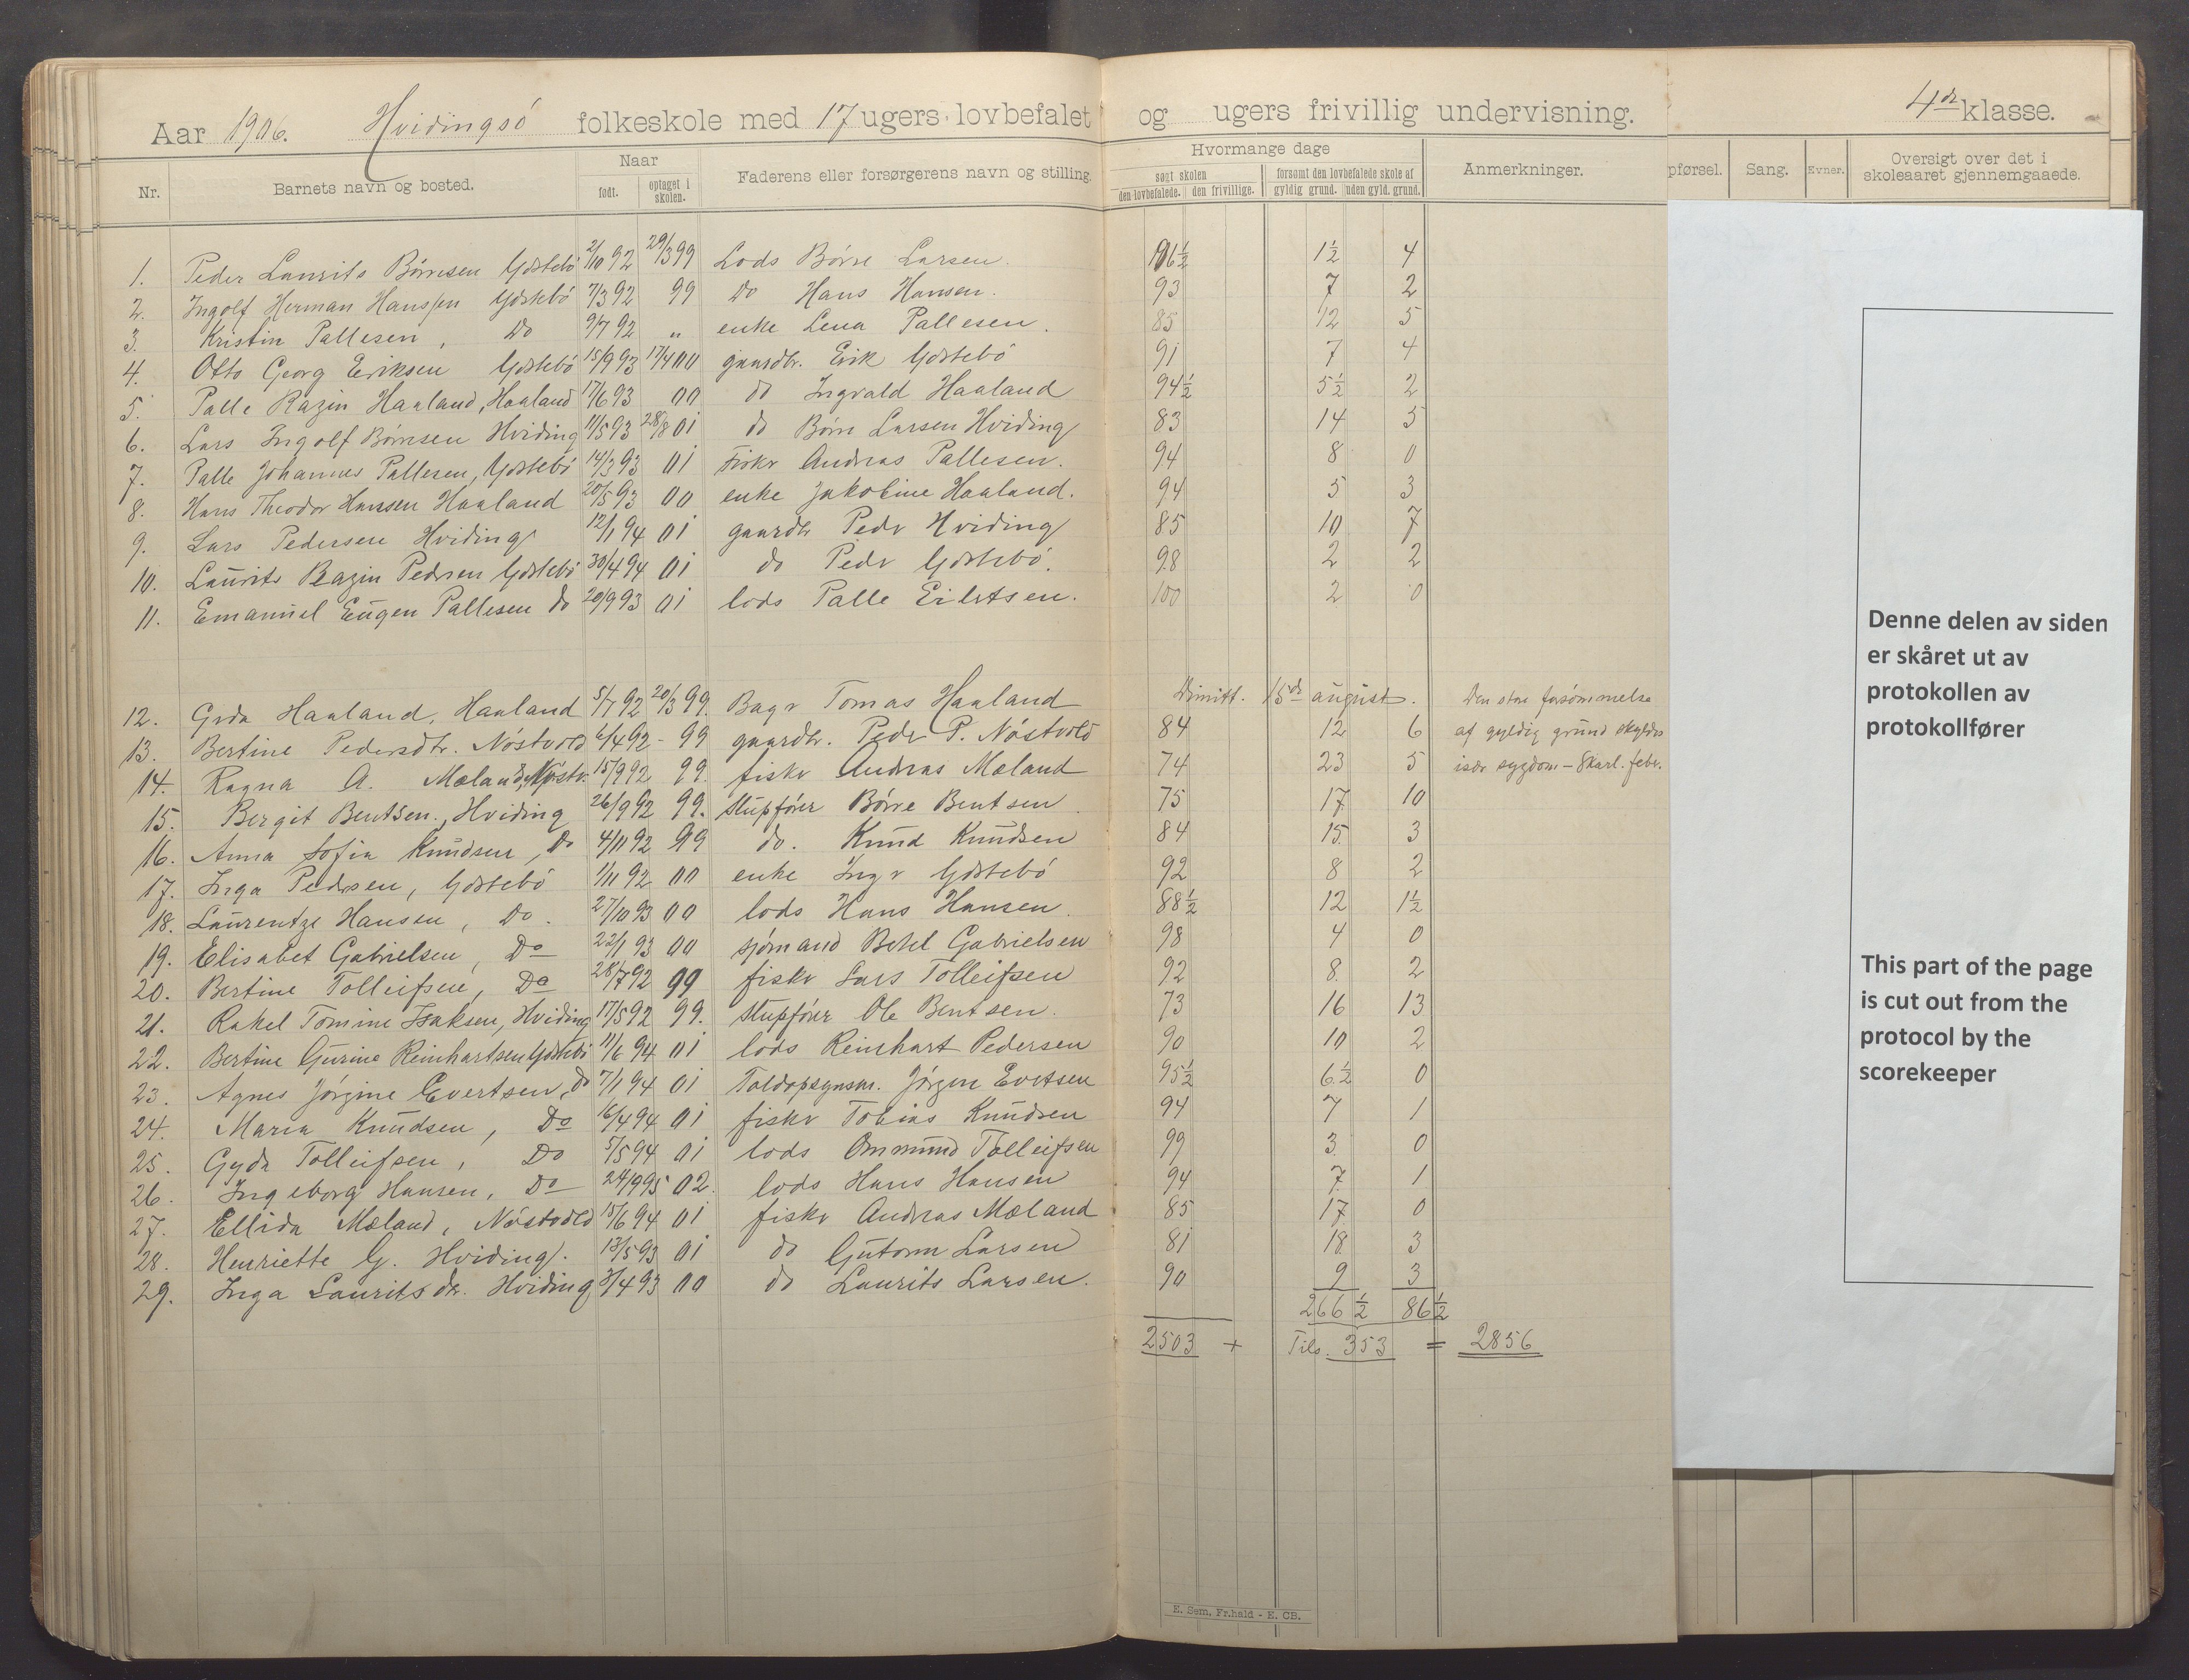 Aar 1906. Hvidingsö folkeskole med 17 ugers lovbefalet og ugers frivillig undervisning. 4de klasse.
Nr. Barnets navn og bosted. Naar født. optaget i skolen. Faderens eller forsørgerens navn og stilling. Hvormange dage søgt skolen den lovbefalede. den frivillige. forsømt den lovbefalede skole af gyldig grund. uden gyld. grund. Anmerkninger. pførsel. Sang. Evner. Oversigt over det i skoleaaret gjennemgaaede.
1. Peder Laurits Börresen Ydstebö 2/10 92 29/3 99 Lods Börre Larsen. 96½ 1½ 4
2. Ingolf Herman Hanssen Ydstebö 7/3 92 99 Do Hans Hansen. 93 7 2
3. Kristin Pallesen, Do 9/7 92 " enke Lena Pallesen. 85 12 5
4. Otto Georg Eriksen Ydstebö 15/9 93 17/4 00 gaardbr. Erik Ydstebö 91 7 4
5. Palle Razin Haaland, Haaland 17/6 93 00 do Ingvald Haaland 94½ 5½ 2
6. Lars Ingolf Börresen Hviding 11/5 93 28/8 01 do Börre Larsen Hviding 83 14 5
7. Palle Johannes Pallesen, Ydstebö 14/3 93 01 Fisker Andreas Pallesen. 94 8 0
8. Hans Theodor Hansen Haaland 20/5 93 00 enke Jakobine Haaland. 94 5 3
9. Lars Pedersen Hviding 12/1 94 01 gaardbr Peder Hviding 85 10 7
10. Laurits Razin Pedersen Ydstebö 30/4 94 01 do Peder Ydstebö. 98 2 2
11. Emanuel Eugen Pallesen do 20/9 93 01 lods Palle Eilertsen. 100 2 0
12. Gerda Haaland, Haaland 5/7 92 20/3 99. Bager Tomas Haaland Dimitt. 15de august. Den store forsömmelse
13. Bertine Pedersdtr. Nöstvold 6/4 92 - 99 gaardbr. Peder P. Nöstvold 84 12 6 af gyldig grund skyldes
14. Ragna A. Mæland, Nöstv. 15/9 92 99. fisker Andreas Mæland 74 23 5 især sygdom – Skarl. feber.
15. Bergit Bentsen, Hviding 26/9 92 99. slupförer Börre Bentsen. 75 17 10
16. Anna Sofia Knudsen, Do 4/11 92 99 do. Knud Knudsen 84 15 3
17. Inga Pedersen, Ydstebö 1/11 92 00 enke Inger Ydstebö 92 8 2
18. Laurentze Hansen, Do. 27/10 93 00 lods Hans Hansen. 88½ 12 1½
19. Elisabet Gabrielsen, Do 22/1 93 00 sjömand Betel Gabrielsen 98 4 0
20. Bertine Tolleifsen, Do 28/7 92 99 fisker Lars Tolleifsen 92 8 2
21. Rakel Tomine Isaksen, Hviding 17/5 92 99. slupförer Ole Bentsen. 73 16 13
22. Bertine Gurine Reinhartsen Ydstebö 11/6 94 01 lods Reinhart Pedersen 90 10 2
23. Agnes Jörgine Evertsen, do 7/1 94 01 Toldopsynsm. Jörgen Evertsen 95½ 6½ 0
24. Maria Knudsen, Do 16/4 94 01 fisker Tobias Knudsen 94 7 1
25. Gyda Tolleifsen, Do 5/5 94 01 lods Ommund Tolleifsen 99 3 0
26. Ingeborg Hansen, Do 24/9 95 02. lods Hans Hansen 94 7 1
27. Ellida Mæland, Nöstvold 15/6 94 01 fisker Andreas Mæland 85 17 0
28. Henriette G. Hviding. 13/5 93 01 do Gutorm Larsen 81 18 3
29. Inga Lauritsdtr. Hviding 3/4 93 00 do Laurits Larsen. 90 9 3
266½ 86½
2503 + Tils. 353 = 2856
E. Sem. Fr.hald - E. CB.
Denne delen av siden
er skåret ut av
protokollen av
protokollfører
This part of the page
is cut out from the
protocol by the
scorekeeper